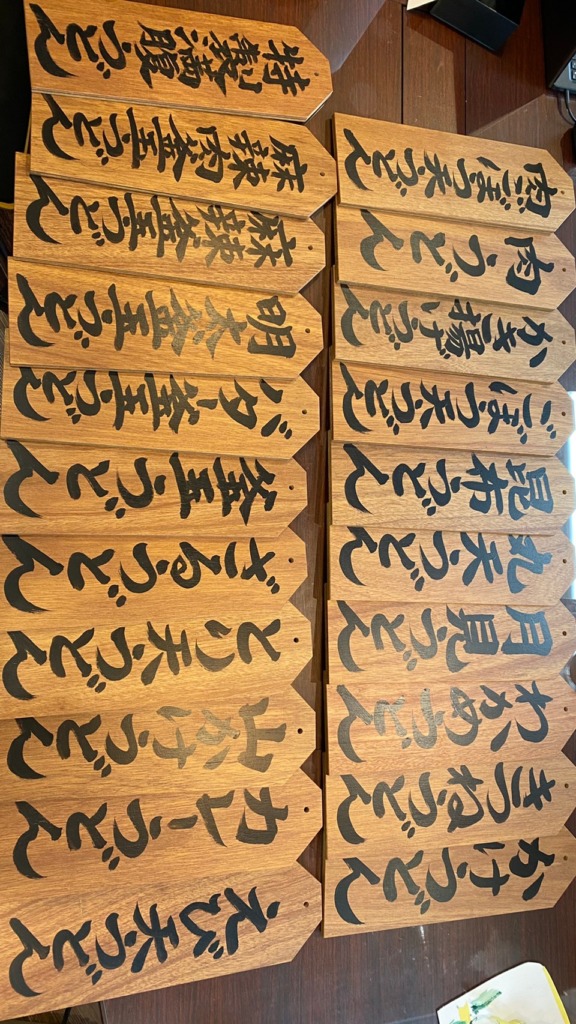 かけうどん
きつねうどん
わかめうどん
月見うどん
丸天うどん
昆布うどん
ごぼう天うどん
かき揚げうどん
肉うどん
肉ごぼう天うどん
えび天うどん
カレーうどん
山かけうどん
とり天うどん
ざるうどん
釜玉うどん
バター釜玉うどん
明太釜玉うどん
麻辣釜玉うどん
麻辣肉釜玉うどん
特製満腹うどん